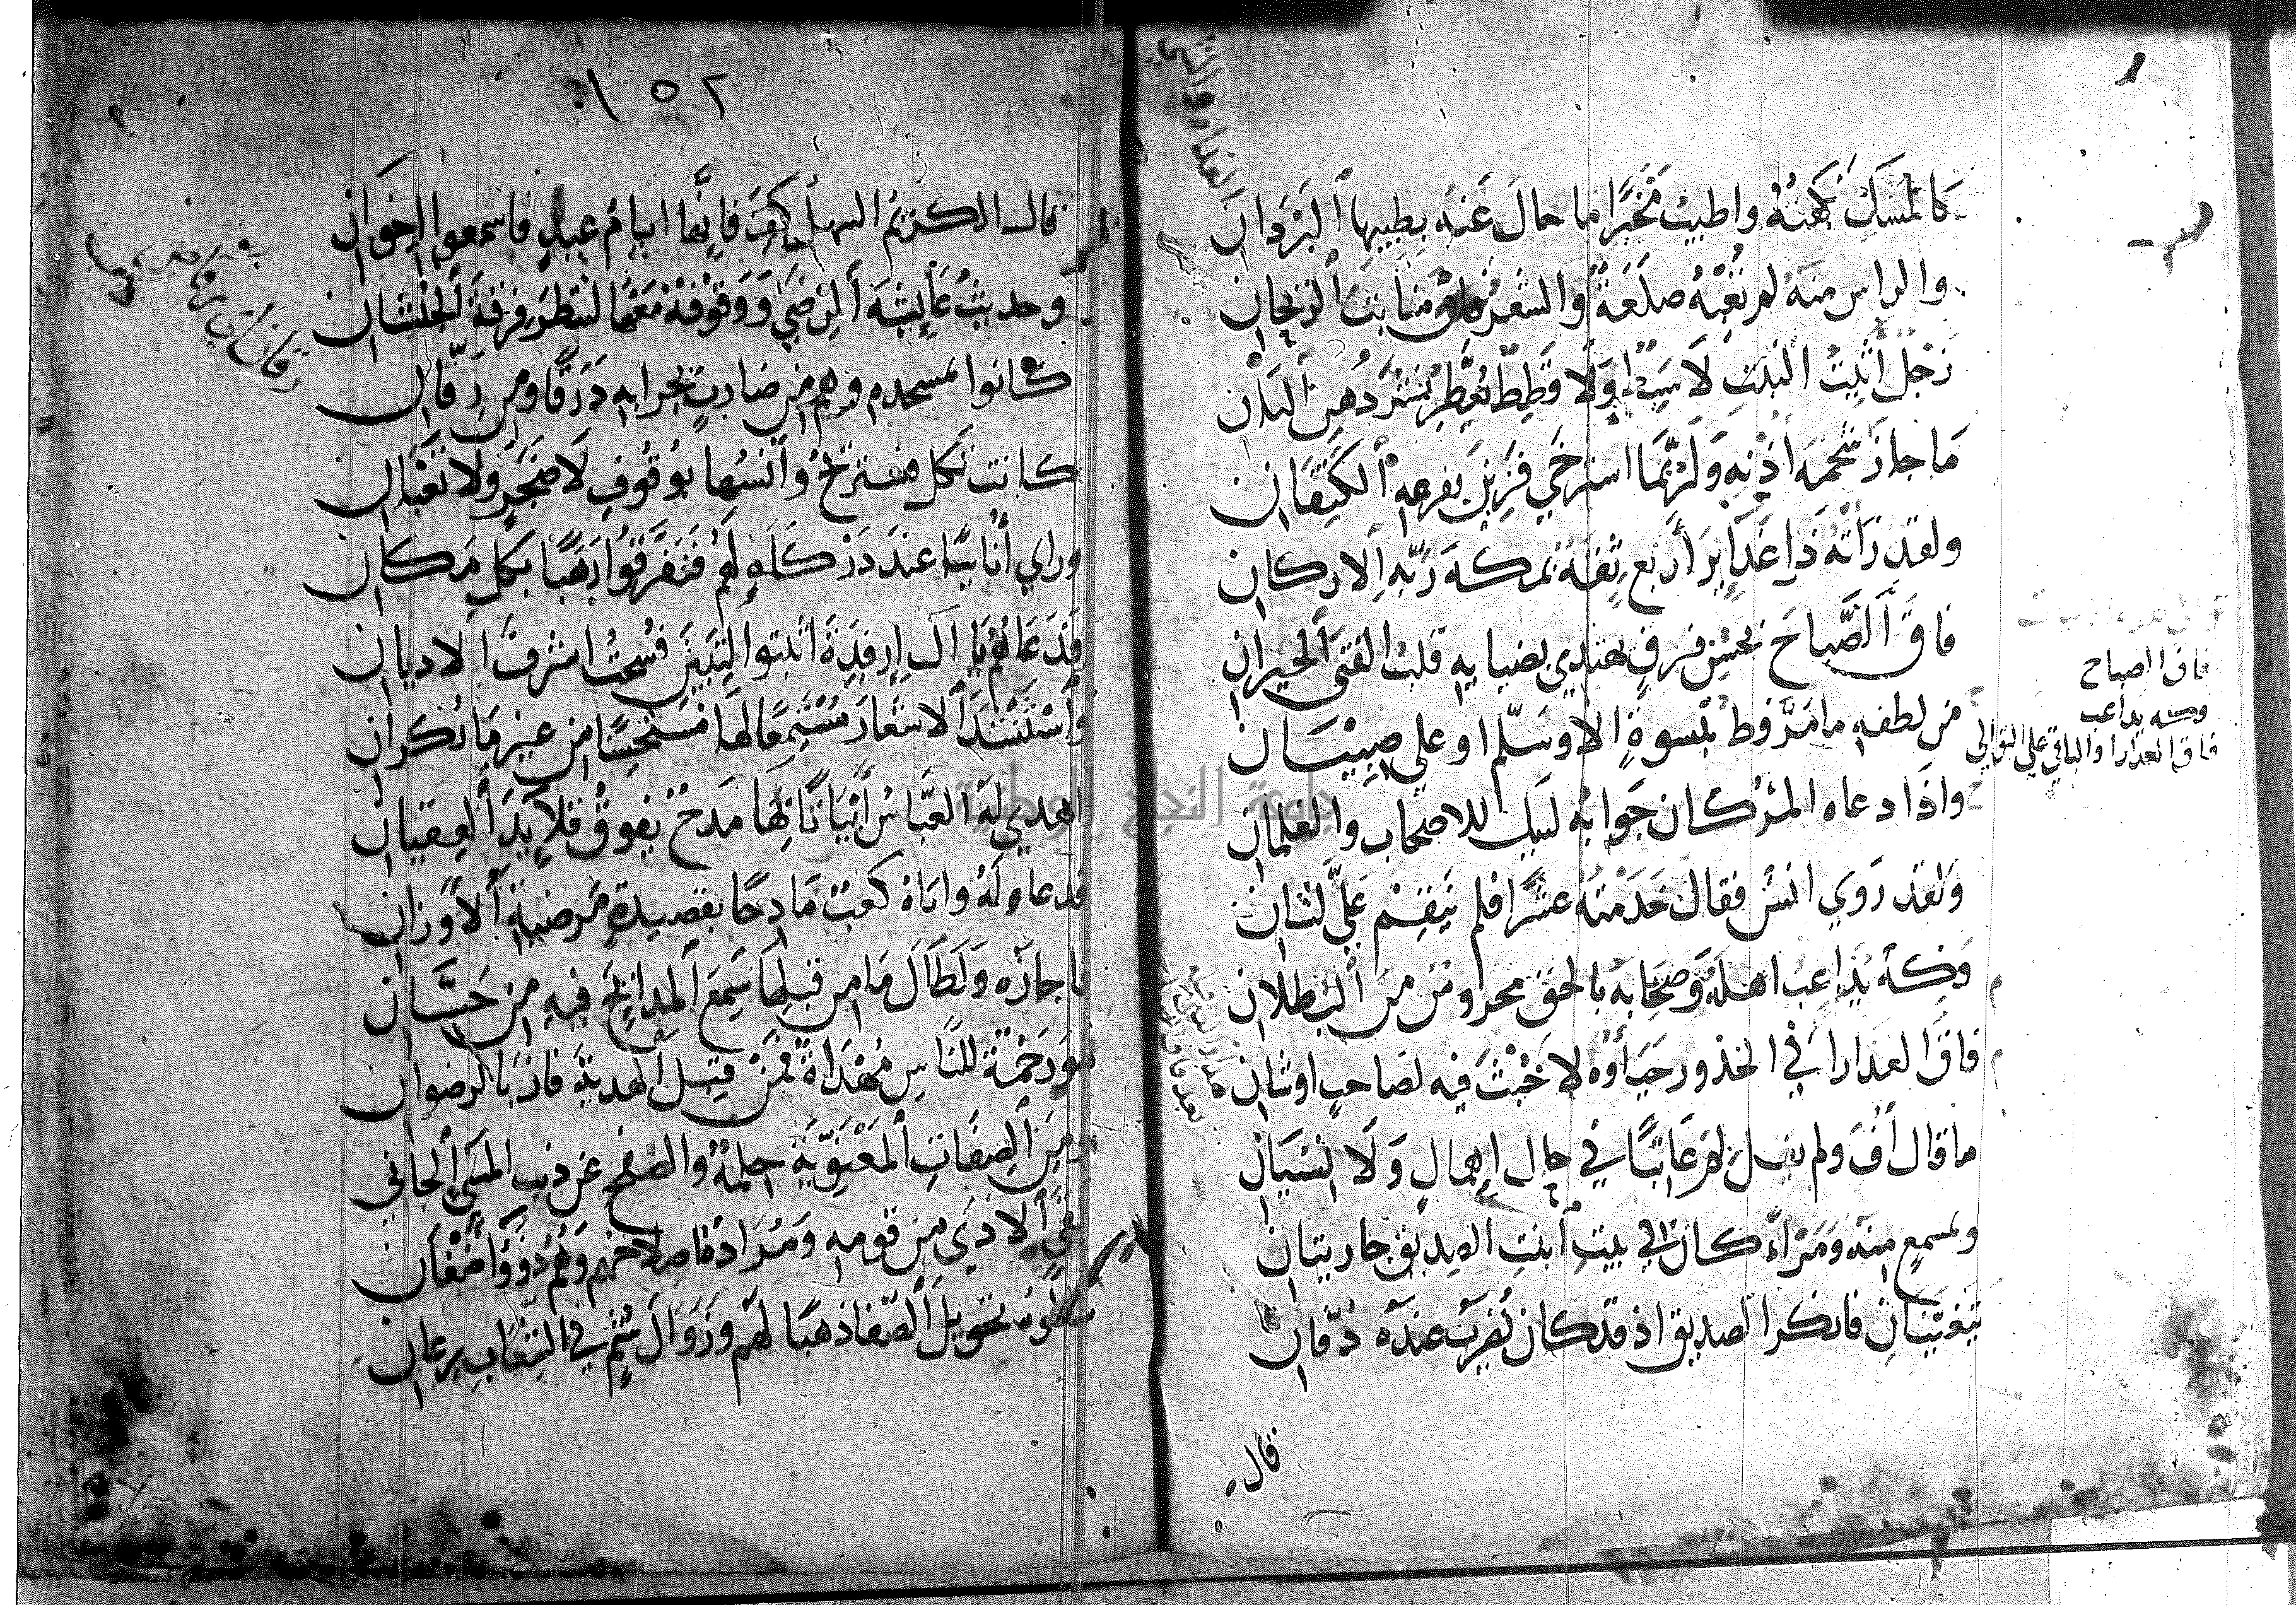 كالمسك نكهته واطيب مخبرا ما حال عنه بطيبها البردان
والراس منه لم تعبه صلعة والشعر فاق منابت الريحان
رجل اثيث النبت لا سبط ولا قطط يعطر نشر دهن البان
ما جاز شحمة اذنه ولربما استرخي فزين بفرعه الكتفان
ولقد راته ذا غداير أربع ثقة بمكة ربة الاركان
فاق الصباح بحسن فرق يهتدي بضيايه قلب الفتى الحيران
من لطفه ما مر قط بنسوة الا وسلم او على صبيان
واذا دعاه المرء كان جوابه لبيك للاصحاب والغلمان
ولقد روي انس فقال خدمته عشرا فلم ينقم علي لشان
وفكه يداعب اهله وصحابه بالحق محروس من البطلان
فاق العذارا في الخدور حياؤه لا خبث فيه لصاحب او شان
ما قال أف ولم يقل لم عاتبا في حال إهمال ولا نسيان
وبمسمع منه ومراء كان في بيت ابنت الصديق جاريتان
تتغنيان فانكر الصديق اذ قد كان يضرب عنده دفان
قال
فاق الصباح
وفكه يداعب
فاق العذارا والباقي على التوالي
١٥٢
قال الكريم السهل كف فإنها ايام عيد فاسمعوا اخواني
وحديث عايشة الرضى ووقوفه معها لتنظر فرقة الحبشان
كانوا بمسجده وهم من ضارب بحرابه درقا ومن رفان
كانت تكل فتستريح وانسها بوقوف لا ضجر ولا تعبان
وراي أناسا عند دركلة لهم فتفرقوا رهبا بكل مكان
فدعاهم يا ال ارفدة اثبتوا لتبين فسحت اشرف الاديان
واستنشد الاشعار مستمعا لها مستحسنا من غير ما نكران
اهدي له العباس أبياتا لها مدح يفوق قلايد العقيان
فدعا له واتاه كعب مادحا بقصيدة مرضية الاوزان
فاجازه ولطال ما من قبلها سمع المدايح فيه من حسان
هو رحمة للناس مهداة فمن قبل الهدية فاز بالرضوان
ومن الصفات المعنوية حلمه والصفح عن ذنب المسي الجاني
لقي الاذى من قومه ومراده اصلاحهم وهم ذوو اضغان
تحويل الصفا ذهبا لهم وزوال شم في الشعاب رعان